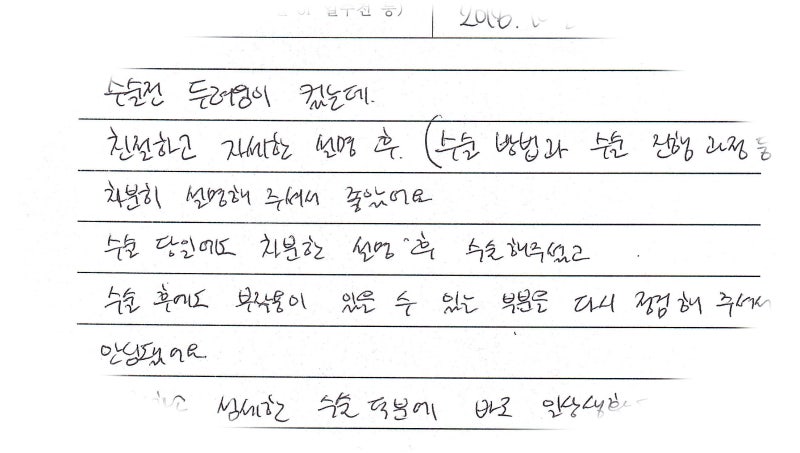 2016.
수술전 두려움이 컸는데.
친절하고 자세한 설명 후. (수술 방법과 수술 진행 과정 등
차분히 설명해 주셔서 좋았어요
수술 당일에도 차분한 설명 후 수술해주셨고
수술 후에도 부작용이 있을 수 있는 부분을 다시 점검해 주셔서
안심됐어요
섬세한 수술 덕분에 바로 일상생활